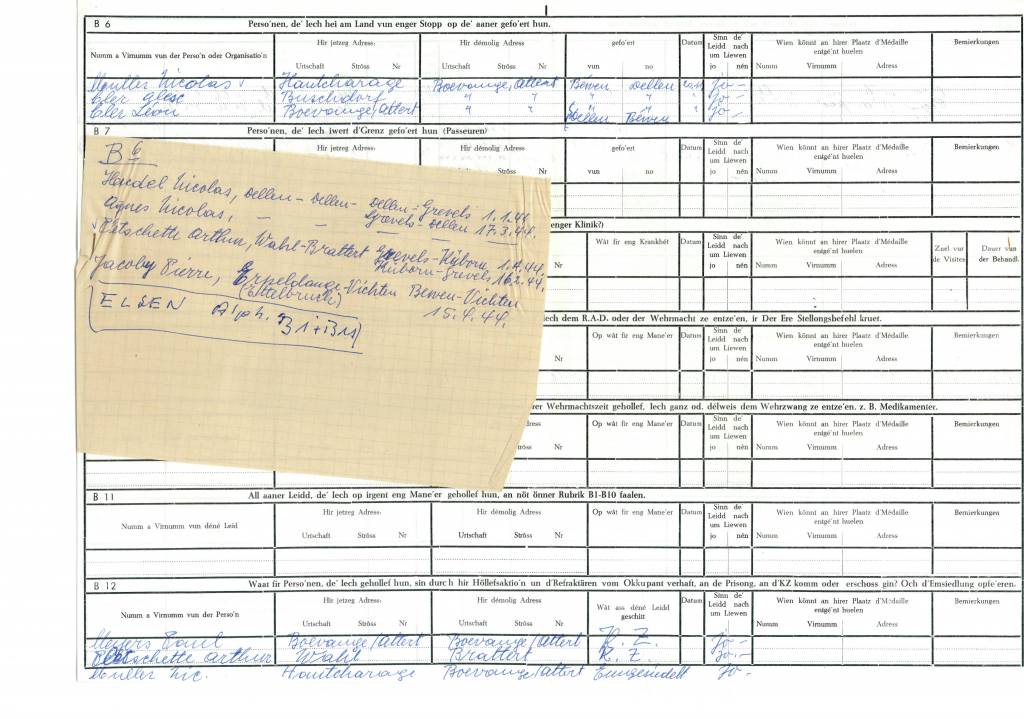 B 6 Perso'nen, de' Iech hei am Land vun enger Stopp op de' aaner gefo'ert hun.
Numm a Virnumm vun der Perso'n oder Organisatio'n Hir jetzeg Adress: Hir démolig Adress gefo'ert Datum Sinn de' Leidd nach um Liewen Wien könnt an hirer Plaatz d'Médaille entgé'nt huelen Bemierkungen
Urtschaft Ströss Nr Urtschaft Ströss Nr vun no jo nén Numm Virnumm Adress
Muller Nicolas Hautcharage Boevange/Attert Bewen Dellen jo -
Eler Buschdorf " " " " " jo -
Eler Léon Boevange/Attert " " Dellen Bewen jo -
B 7 Perso'nen, de' Iech iwert d'Grenz gefo'ert hun (Passeuren)
Hir jetzeg Adress: Hir démolig Adress gefo'ert Datum Sinn de' Leidd nach um Liewen Wien könnt an hirer Plaatz d'Médaille entgé'nt huelen Bemierkungen
Ströss Nr vun no jo nén Numm Virnumm Adress
B 6
Handel Nicolas, Dellen - Dellen - Dellen-Grevels 1.1.44
Agnes Nicolas, - - Grevels-Dellen 17.3.44.
Petschette Arthur, Wahl-Brattert Grevels-Hüborn 1.2.44.
Hüborn-Grevels 16.2.44.
Jacoby Pierre, Erpeldange-Vichten Bewen-Vichten
(Ettelbruck) 15.4.44.
ELSEN Alph. B1+B11
enger Klinik?)
Wât fir eng Krankhét Datum Sinn de' Leidd nach um Liewen Wien könnt an hirer Plaatz d'Médaille entgé'nt huelen Zuel vur de Visiten Dauer vun der Behandl.
jo nén Numm Virnumm Adress
lech dem R.A.D. oder der Wehrmacht ze entze'en, ir Der Ere Stellongsbefehl kruet.
Op wât fir eng Mane'er Datum Sinn de' Leidd nach um Liewen Wien könnt an hirer Plaatz d'Médaille entgé'nt huelen Bemierkungen
Nr jo nén Numm Virnumm Adress
rer Wehrmachtszeit gehollef, Iech ganz od. délweis dem Wehrzwang ze entze'en. z. B. Medikamenter.
dress Op wât fir eng Mane'er Datum Sinn de' Leidd nach um Liewen Wien könnt an hirer Plaatz d'Médaille entgé'nt huelen Bemierkungen
Ströss Nr jo nén Numm Virnumm Adress
B 11 All aaner Leidd, de' Iech op irgent eng Mane'er gehollef hun, an nöt önner Rubrik B1-B10 faalen.
Numm a Virnumm vun déné Leid Hir jetzeg Adress: Hir démolig Adress Op wât fir eng Mane'er Datum Sinn de' Leidd nach um Liewen Wien könnt an hirer Plaatz d'Médaille entgé'nt huelen Bemierkungen
Urtschaft Ströss Nr Urtschaft Ströss Nr jo nén Numm Virnumm Adress
B 12 Waat fir Perso'nen, de' Iech gehollef hun, sin durch hir Höllefsaktio'n un d'Refraktären vom Okkupant verhaft, an de Prisong, an d'KZ komm oder erschoss gin? Och d'Emsiedlung opfe'eren.
Numm a Virnumm vun der Perso'n Hir jetzeg Adress: Hir démolig Adress Wât ass déné Leidd geschitt Datum Sinn de' Leidd nach um Liewen Wien könnt an hirer Plaatz d'Médaille entgé'nt huelen Bemierkungen
Urtschaft Ströss Nr Urtschaft Ströss Nr jo nén Numm Virnumm Adress
Meyers Paul Boevange/Attert Boevange/Attert K. Z. jo -
Petschette Arthur Wahl Brattert K. Z. jo -
Muller Nic. Hautcharage Boevange/Attert Emgesiedelt jo -